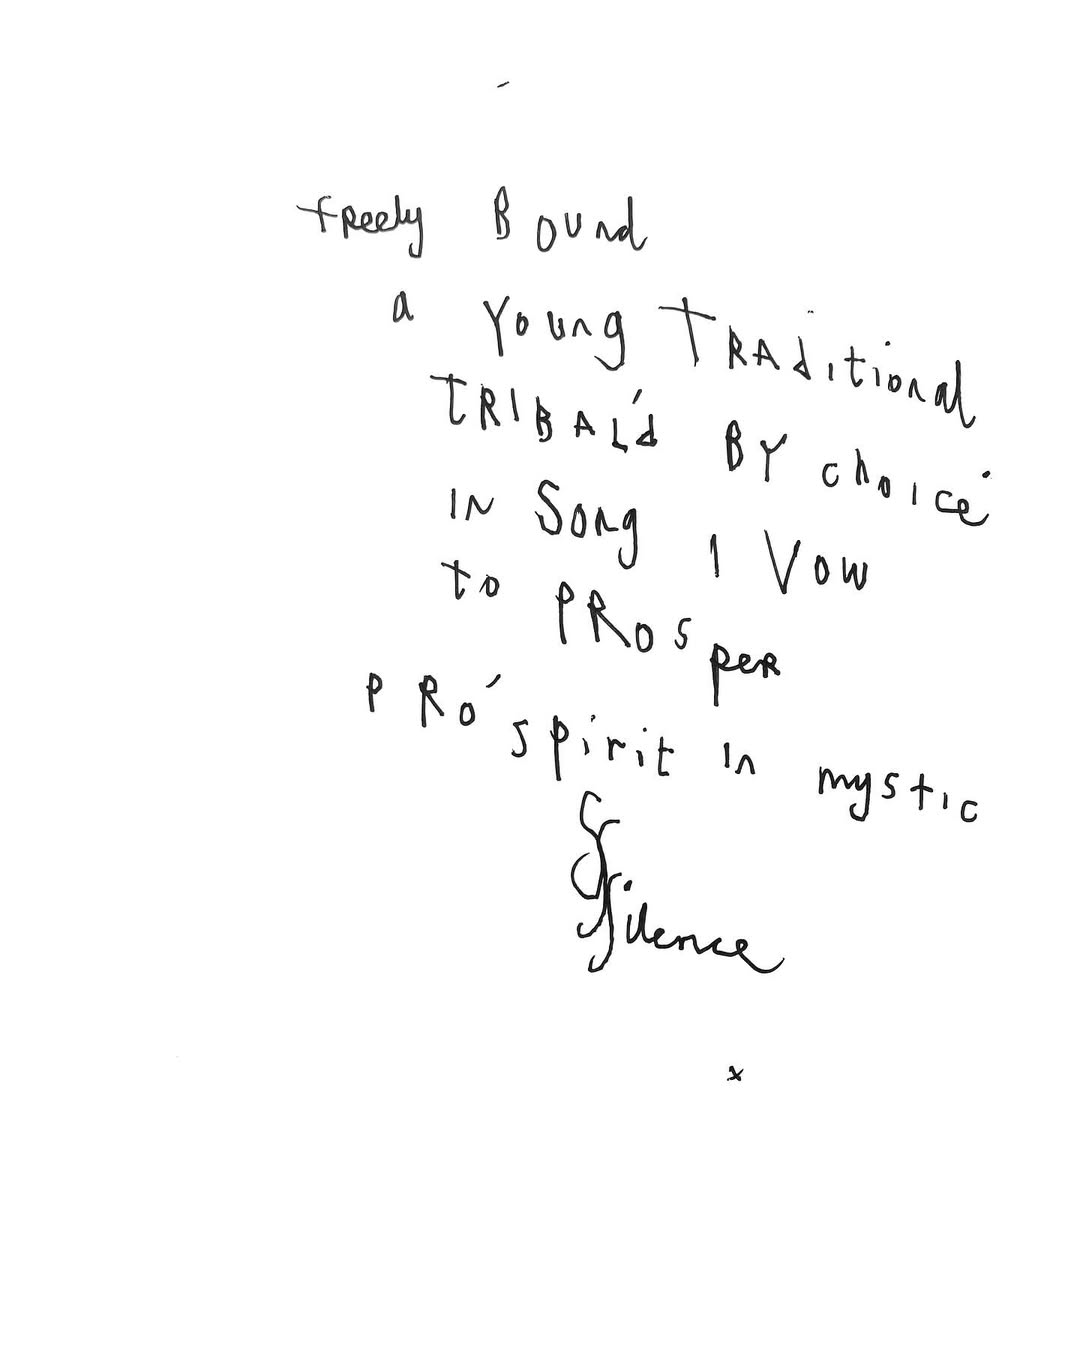 freely Bound
a Young TRAditional
TRIBAL'd BY choice
IN Song I Vow
to PROsper
PRo'spirit in mystic
Silence
x